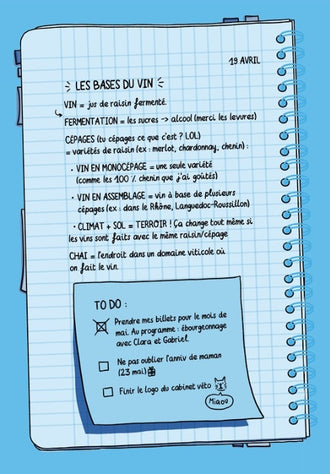 19 AVRIL
LES BASES DU VIN
VIN = jus de raisin fermenté.
FERMENTATION = les sucres -> alcool (merci les levures)
CÉPAGES (tu cépages ce que c'est ? LOL)
= variétés de raisin (ex : merlot, chardonnay, chenin) :
• VIN EN MONOCÉPAGE = une seule variété
(comme les 100 % chenin que j'ai goûtés)
• VIN EN ASSEMBLAGE = vin à base de plusieurs
cépages (ex : dans le Rhône, Languedoc-Roussillon)
• CLIMAT + SOL = TERROIR ! Ça change tout même si
les vins sont faits avec le même raisin/cépage
CHAI = l'endroit dans un domaine viticole où
on fait le vin.
TO DO :
Prendre mes billets pour le mois de
mai. Au programme : ébourgeonnage
avec Clara et Gabriel.
Ne pas oublier l'anniv de maman
(23 mai)
Finir le logo du cabinet véto
Miaou